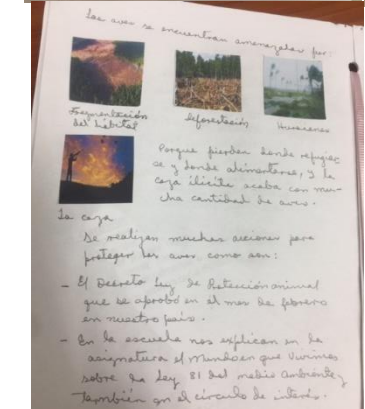 Las aves se encuentran amenazadas por:
Fragmentación
del hábitat
Deforestación
Huracanes
Porque pierden donde refugiar-
se y donde alimentarse, y la
caza ilícita acaba con mu-
cha cantidad de aves.
La caza
Se realizan muchas acciones para
proteger las aves como son:
- El Decreto Ley de Protección animal
que se aprobó en el mes de febrero
en nuestro país.
- En la escuela nos explican en la
asignatura el Mundo en que Vivimos
sobre la Ley 81 del medio Ambiente y
también en el círculo de interés.